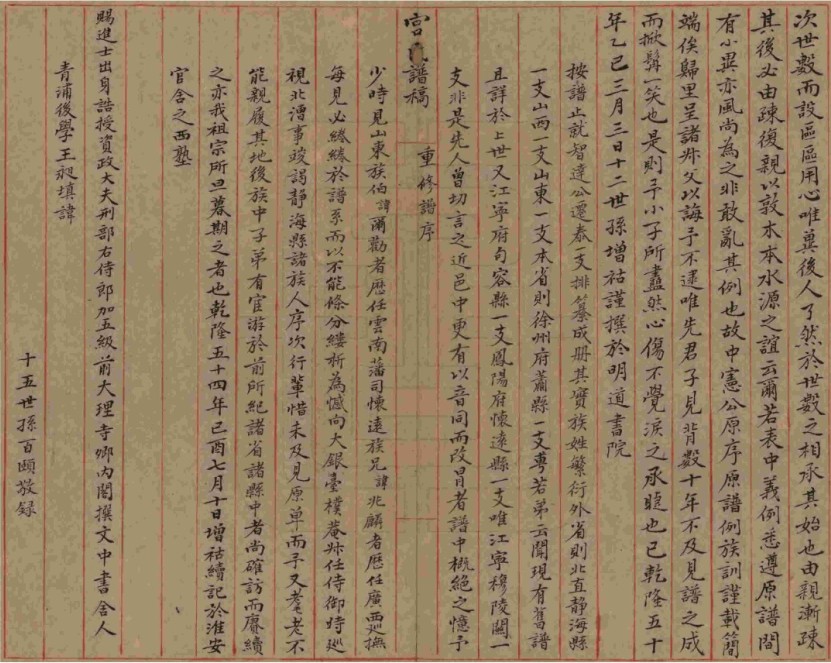 次世數而設區區用心唯冀後人了然於世數之相承其始也由親漸疎
其後必由疎復親以敦木本水源之誼云爾若表中義例悉遵原譜間
有小異亦風尚為之非敢亂其例也故中憲公原序原譜例族訓謹載簡
端俟歸里呈諸叔父以誨予不逮唯先君子見背數十年不及見譜之成
而掀髯一笑也是則予小子所盡然心傷不覺淚之承睫也已乾隆五十
年乙巳三月三日十二世孫增祜謹撰於明道書院
按譜止就智達公遷泰一支排纂成册其實族姓繁衍外省則北直靜海縣
一支山西一支山東一支本省則徐州府蕭縣一支粵若弟云聞現有舊譜
且詳於上世又江寧府句容縣一支鳳陽府懷遠縣一支唯江寧穆陵關一
支非是先人曾切言之近邑中更有以音同而改冒者譜中概絕之憶予
宮氏譜稿
重修譜序
少時見山東族伯諱爾勸者歷任雲南藩司懷遠族兄諱兆麟者歷任廣西巡撫
每見必綣綣於譜系而以不能條分縷析為憾向大銀臺樸菴叔任侍御時巡
視北漕事竣謁靜海縣諸族人序次行輩惜未及見原单而予又耄老不
能親履其地後族中子弟有宦游於前所紀諸省諸縣中者尚確訪而賡續
之亦我祖宗所旦暮期之者也乾隆五十四年己酉七月十日增祜續記於淮安
官舍之西塾
賜進士出身誥授資政大夫刑部右侍郎加五級前大理寺卿內閣撰文中書舍人
青浦後學王昶填諱
十五世孫百頤敬録